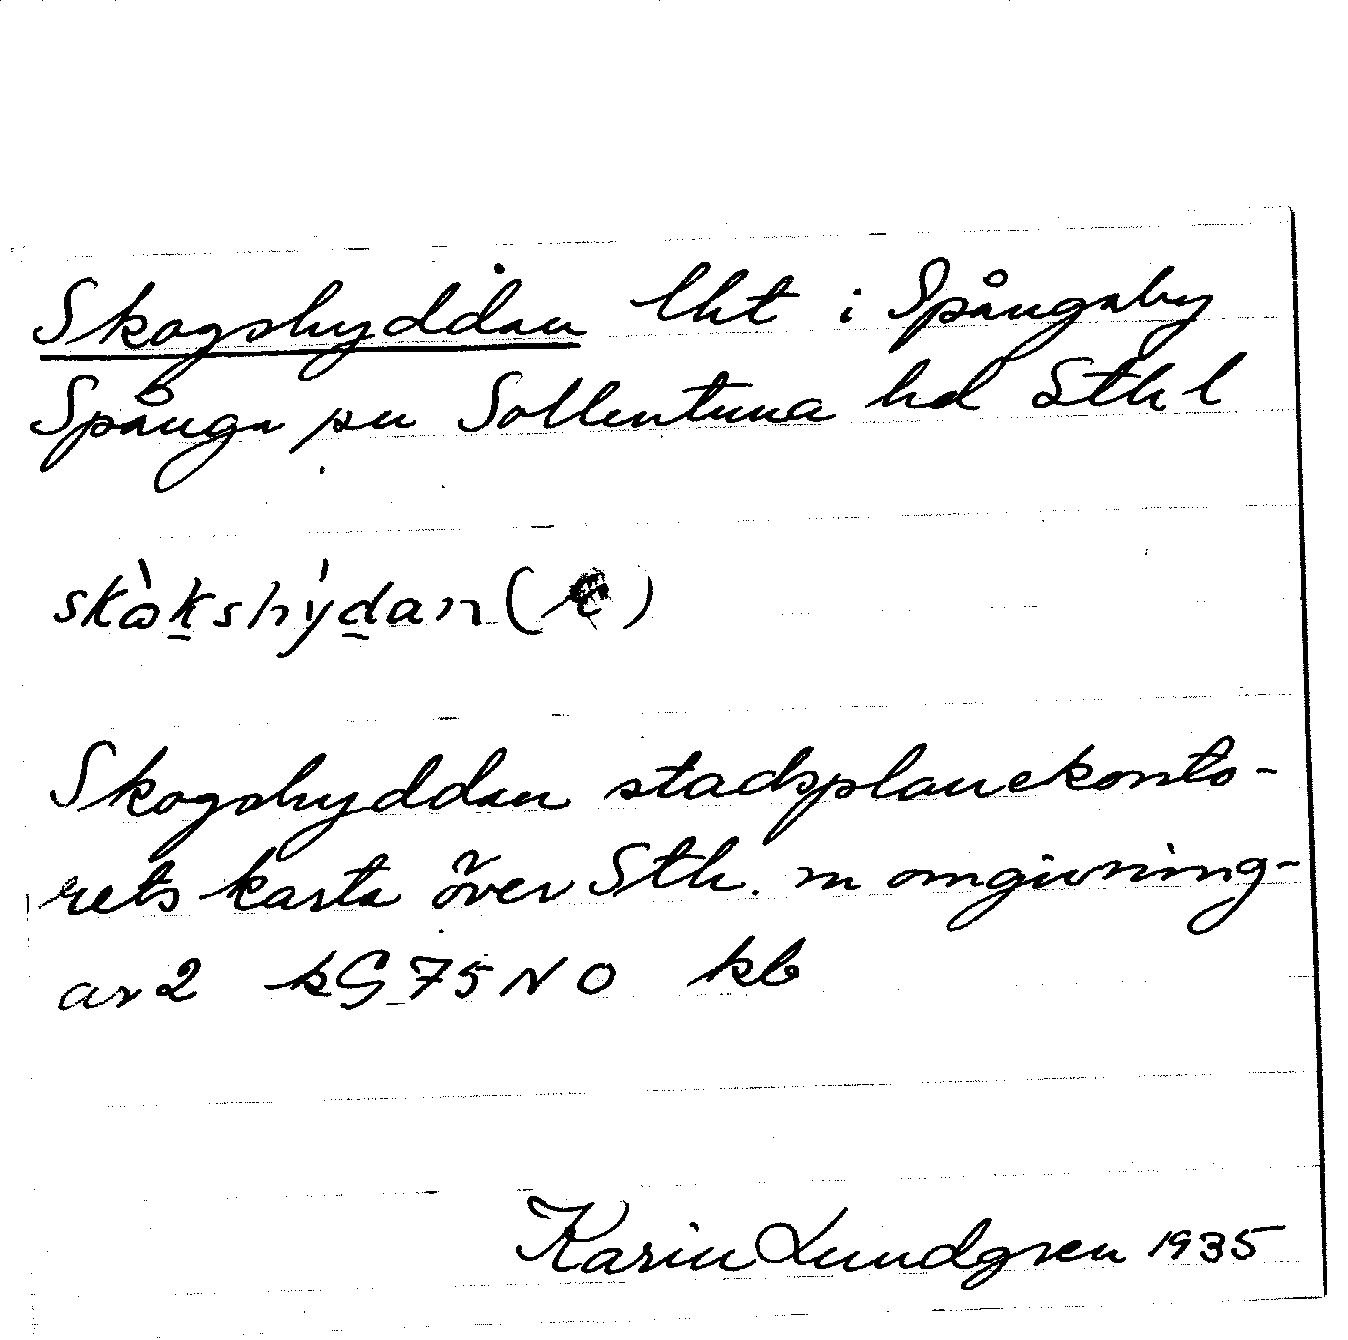 Skogshyddan lht i Spångaby
Spånga sn Sollentuna hd Sthl
skɷ̀kshýdan (
Skogshyddan stadsplanekonto-
rets karta över Sth. m omgivning-
ar 2 kG 75 NO kb
Karin Lundgren 1935